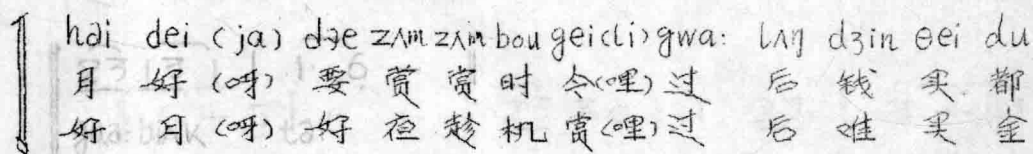 hai dei (ja) dɔe zʌm zʌm bou gei(li) gwa: lʌŋ dʒin θei du
月 好 (呀) 要 赏 赏 时 令(哩) 过 后 钱 买 都
好 月 (呀) 好 夜 趁 机 赏(哩) 过 后 唯 买 金